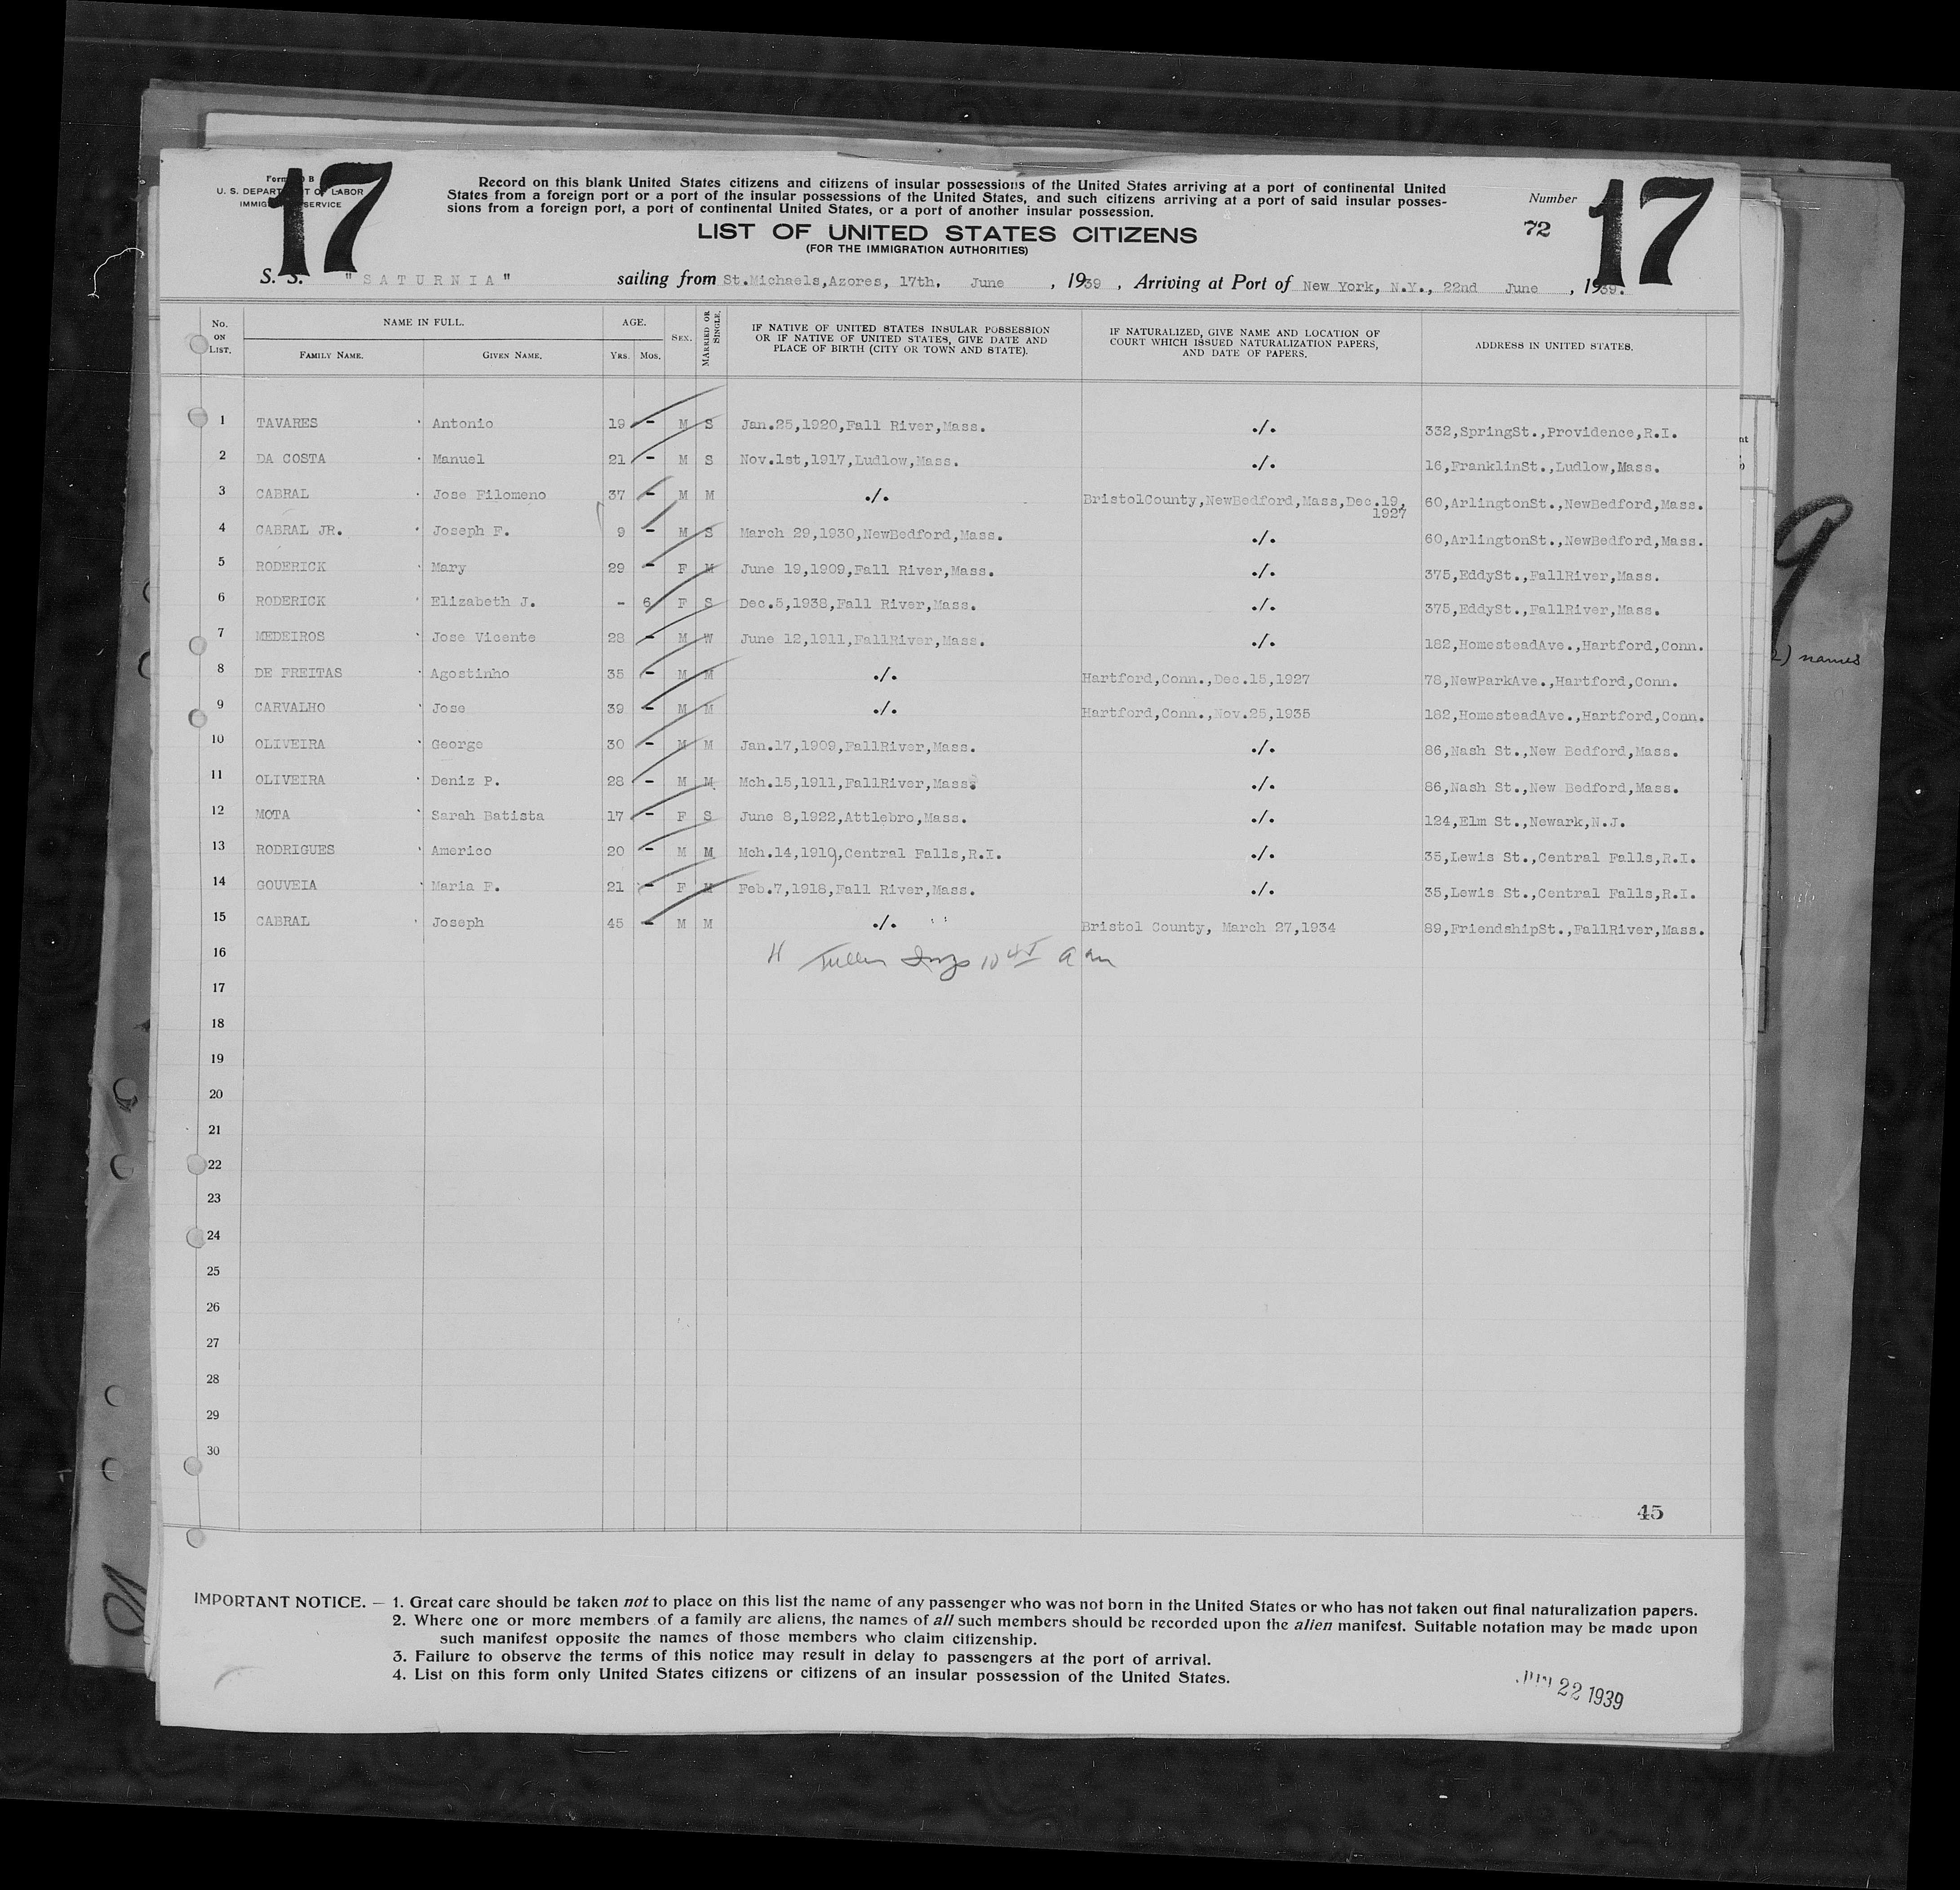 17
17
Form
B
U. S. DEPARTMENT OF LABOR
IMMIG SERVICE
Record on this blank United States citizens and citizens of insular possessions of the United States arriving at a port of continental United
States from a foreign port or a port of the insular possessions of the United States, and such citizens arriving at a port of said insular posses-
sions from a foreign port, a port of continental United States, or a port of another insular possession.
Number
72
LIST OF UNITED STATES CITIZENS
(FOR THE IMMIGRATION AUTHORITIES)
S. S. "SATURNIA" sailing from St.Michaels,Azores, 17th. June , 1939 , Arriving at Port of New York, N.Y., 22nd June , 1939.
No. ON LIST. NAME IN FULL. AGE. SEX. MARRIED OR SINGLE. IF NATIVE OF UNITED STATES INSULAR POSSESSION OR IF NATIVE OF UNITED STATES, GIVE DATE AND PLACE OF BIRTH (CITY OR TOWN AND STATE). IF NATURALIZED, GIVE NAME AND LOCATION OF COURT WHICH ISSUED NATURALIZATION PAPERS, AND DATE OF PAPERS. ADDRESS IN UNITED STATES.
FAMILY NAME. GIVEN NAME. YRS. MOS.
1 TAVARES Antonio 19 - M S Jan.25,1920,Fall River,Mass. ./. 332,SpringSt.,Providence,R.I.
2 DA COSTA Manuel 21 - M S Nov.1st,1917,Ludlow,Mass. ./. 16,FranklinSt.,Ludlow,Mass.
3 CABRAL Jose Filomeno 37 - M M ./. BristolCounty,NewBedford,Mass,Dec.19, 1927 60,ArlingtonSt.,NewBedford,Mass.
4 CABRAL JR. Joseph F. 9 - M S March 29,1930,NewBedford,Mass. ./. 60,ArlingtonSt.,NewBedford,Mass.
5 RODERICK Mary 29 - F M June 19,1909,Fall River,Mass. ./. 375,EddySt.,FallRiver,Mass.
6 RODERICK Elizabeth J. - 6 F S Dec.5,1938,Fall River,Mass. ./. 375,EddySt.,FallRiver,Mass.
7 MEDEIROS Jose Vicente 28 - M W June 12,1911,FallRiver,Mass. ./. 182,HomesteadAve.,Hartford,Conn.
8 DE FREITAS Agostinho 35 - M M ./. Hartford,Conn.,Dec.15,1927 78,NewParkAve.,Hartford,Conn.
9 CARVALHO Jose 39 - M M ./. Hartford,Conn.,Nov.25,1935 182,HomesteadAve.,Hartford,Conn.
10 OLIVEIRA George 30 - M M Jan.17,1909,FallRiver,Mass. ./. 86,Nash St.,New Bedford,Mass.
11 OLIVEIRA Deniz P. 28 - M M Mch.15,1911,FallRiver,Mass. ./. 86,Nash St.,New Bedford,Mass.
12 MOTA Sarah Batista 17 - F S June 8,1922,Attlebro,Mass. ./. 124,Elm St.,Newark,N.J.
13 RODRIGUES Americo 20 - M M Mch.14,1919,Central Falls,R.I. ./. 35,Lewis St.,Central Falls,R.I.
14 GOUVEIA Maria F. 21 - F M Feb.7,1918,Fall River,Mass. ./. 35,Lewis St.,Central Falls,R.I.
15 CABRAL Joseph 45 - M M ./. Bristol County, March 27,1934 89,FriendshipSt.,FallRiver,Mass.
16
17
18
19
20
21
22
23
24
25
26
27
28
29
30
45
IMPORTANT NOTICE. — 1. Great care should be taken not to place on this list the name of any passenger who was not born in the United States or who has not taken out final naturalization papers.
2. Where one or more members of a family are aliens, the names of all such members should be recorded upon the alien manifest. Suitable notation may be made upon
such manifest opposite the names of those members who claim citizenship.
3. Failure to observe the terms of this notice may result in delay to passengers at the port of arrival.
4. List on this form only United States citizens or citizens of an insular possession of the United States.
22 1939
names